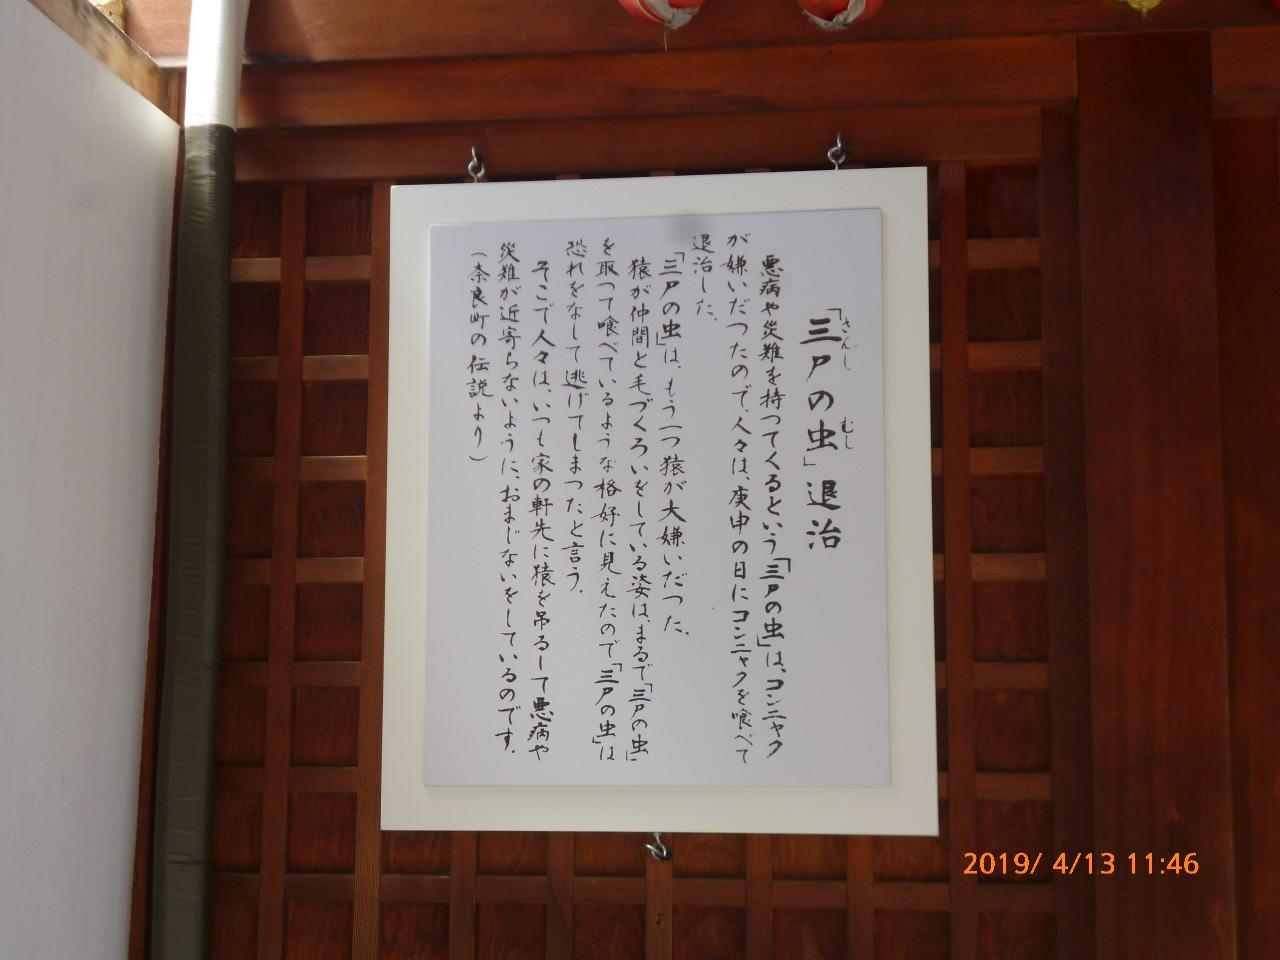 「三尸の虫」退治
さんし
むし
悪病や災難を持つてくるという「三尸の虫」は、コンニャク
が嫌いだつたので、人々は、庚申の日にコンニャクを喰べて
退治した。
「三尸の虫」は、もう一つ猿が大嫌いだつた。
猿が仲間と毛づくろいをしている姿は、まるで「三尸の虫」
を取つて喰べているような格好に見えたので「三尸の虫」は
恐れをなして逃げてしまつたと言う。
そこで人々は、いつも家の軒先に猿を吊るして悪病や
災難が近寄らないように、おまじないをしているのです。
(奈良町の伝説より)
2019/ 4/13 11:46